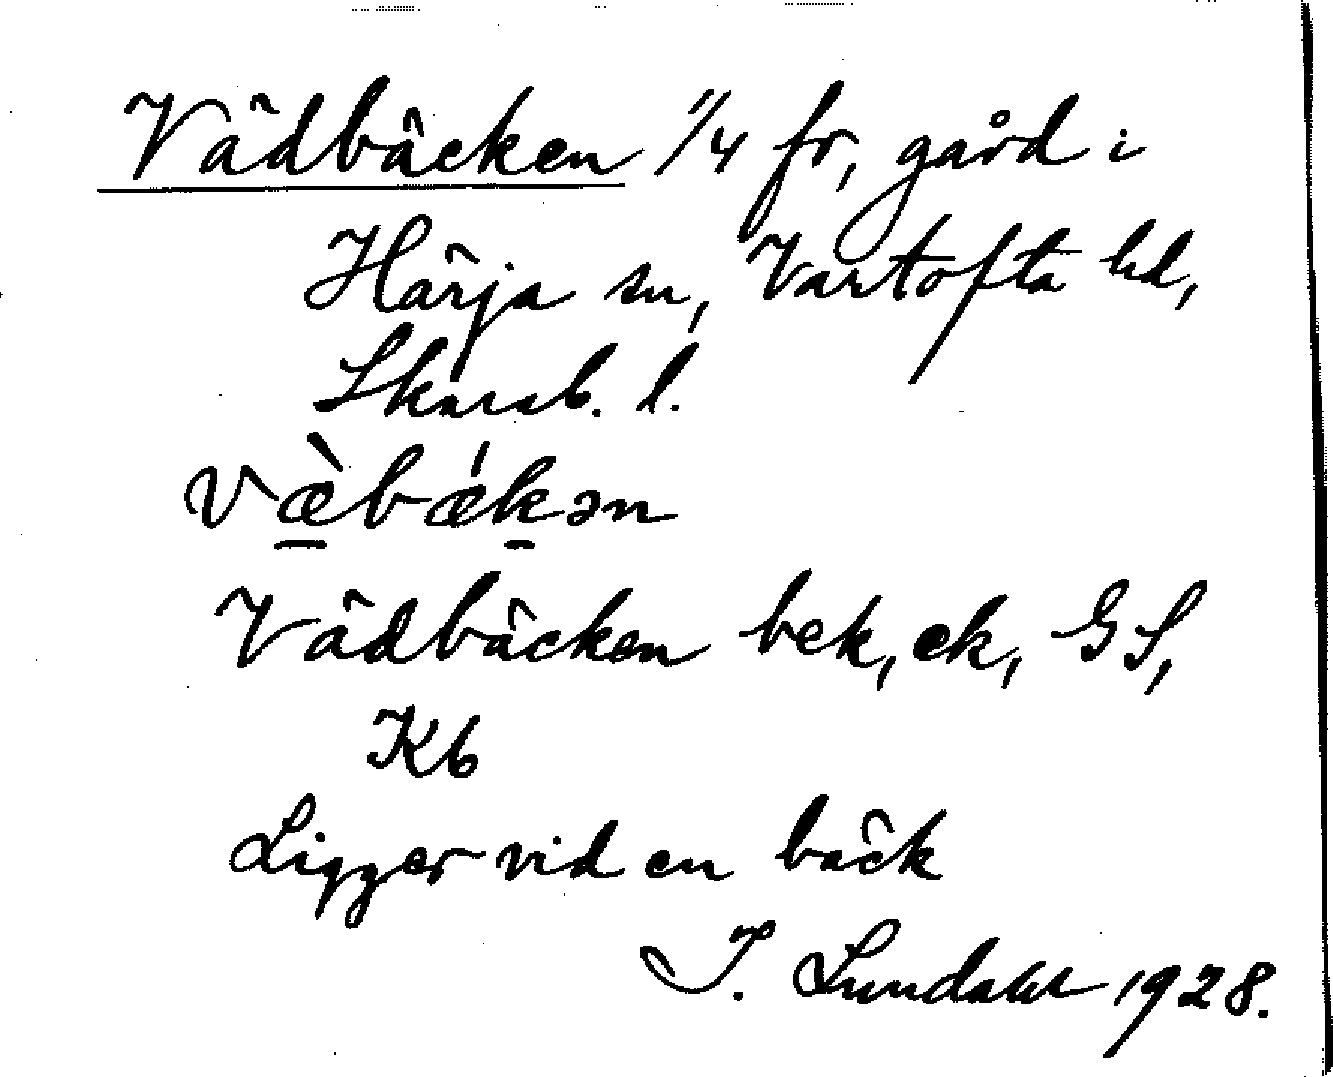 Vädbäcken 1/4 fr, gård i
Härja sn, Vartofta hd,
Skarab. l.
væ̠̀bǽk̠ən
Vädbäcken bek, ek, GS,
Kb
Ligger vid en bäck
I. Lundahl 1928.